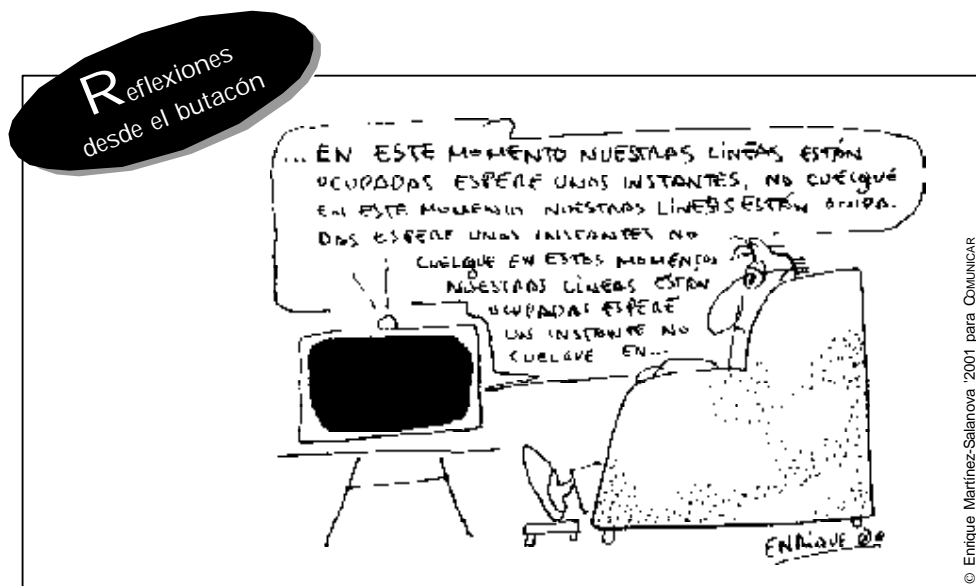 Reflexiones
desde el butacón
... EN ESTE MOMENTO NUESTRAS LÍNEAS ESTÁN
OCUPADAS ESPERE UNOS INSTANTES, NO CUELQUE
EN ESTE MOMENTO NUESTRAS LÍNEAS ESTÁN OCUPA-
DAS ESPERE UNOS INSTANTES NO
CUELGUE EN ESTOS MOMENTOS
NUESTRAS LÍNEAS ESTÁN
OCUPADAS ESPERE
UN INSTANTE NO
CUELGUE EN...
ENRIQUE
© Enrique Martínez-Salanova '2001 para COMUNICAR